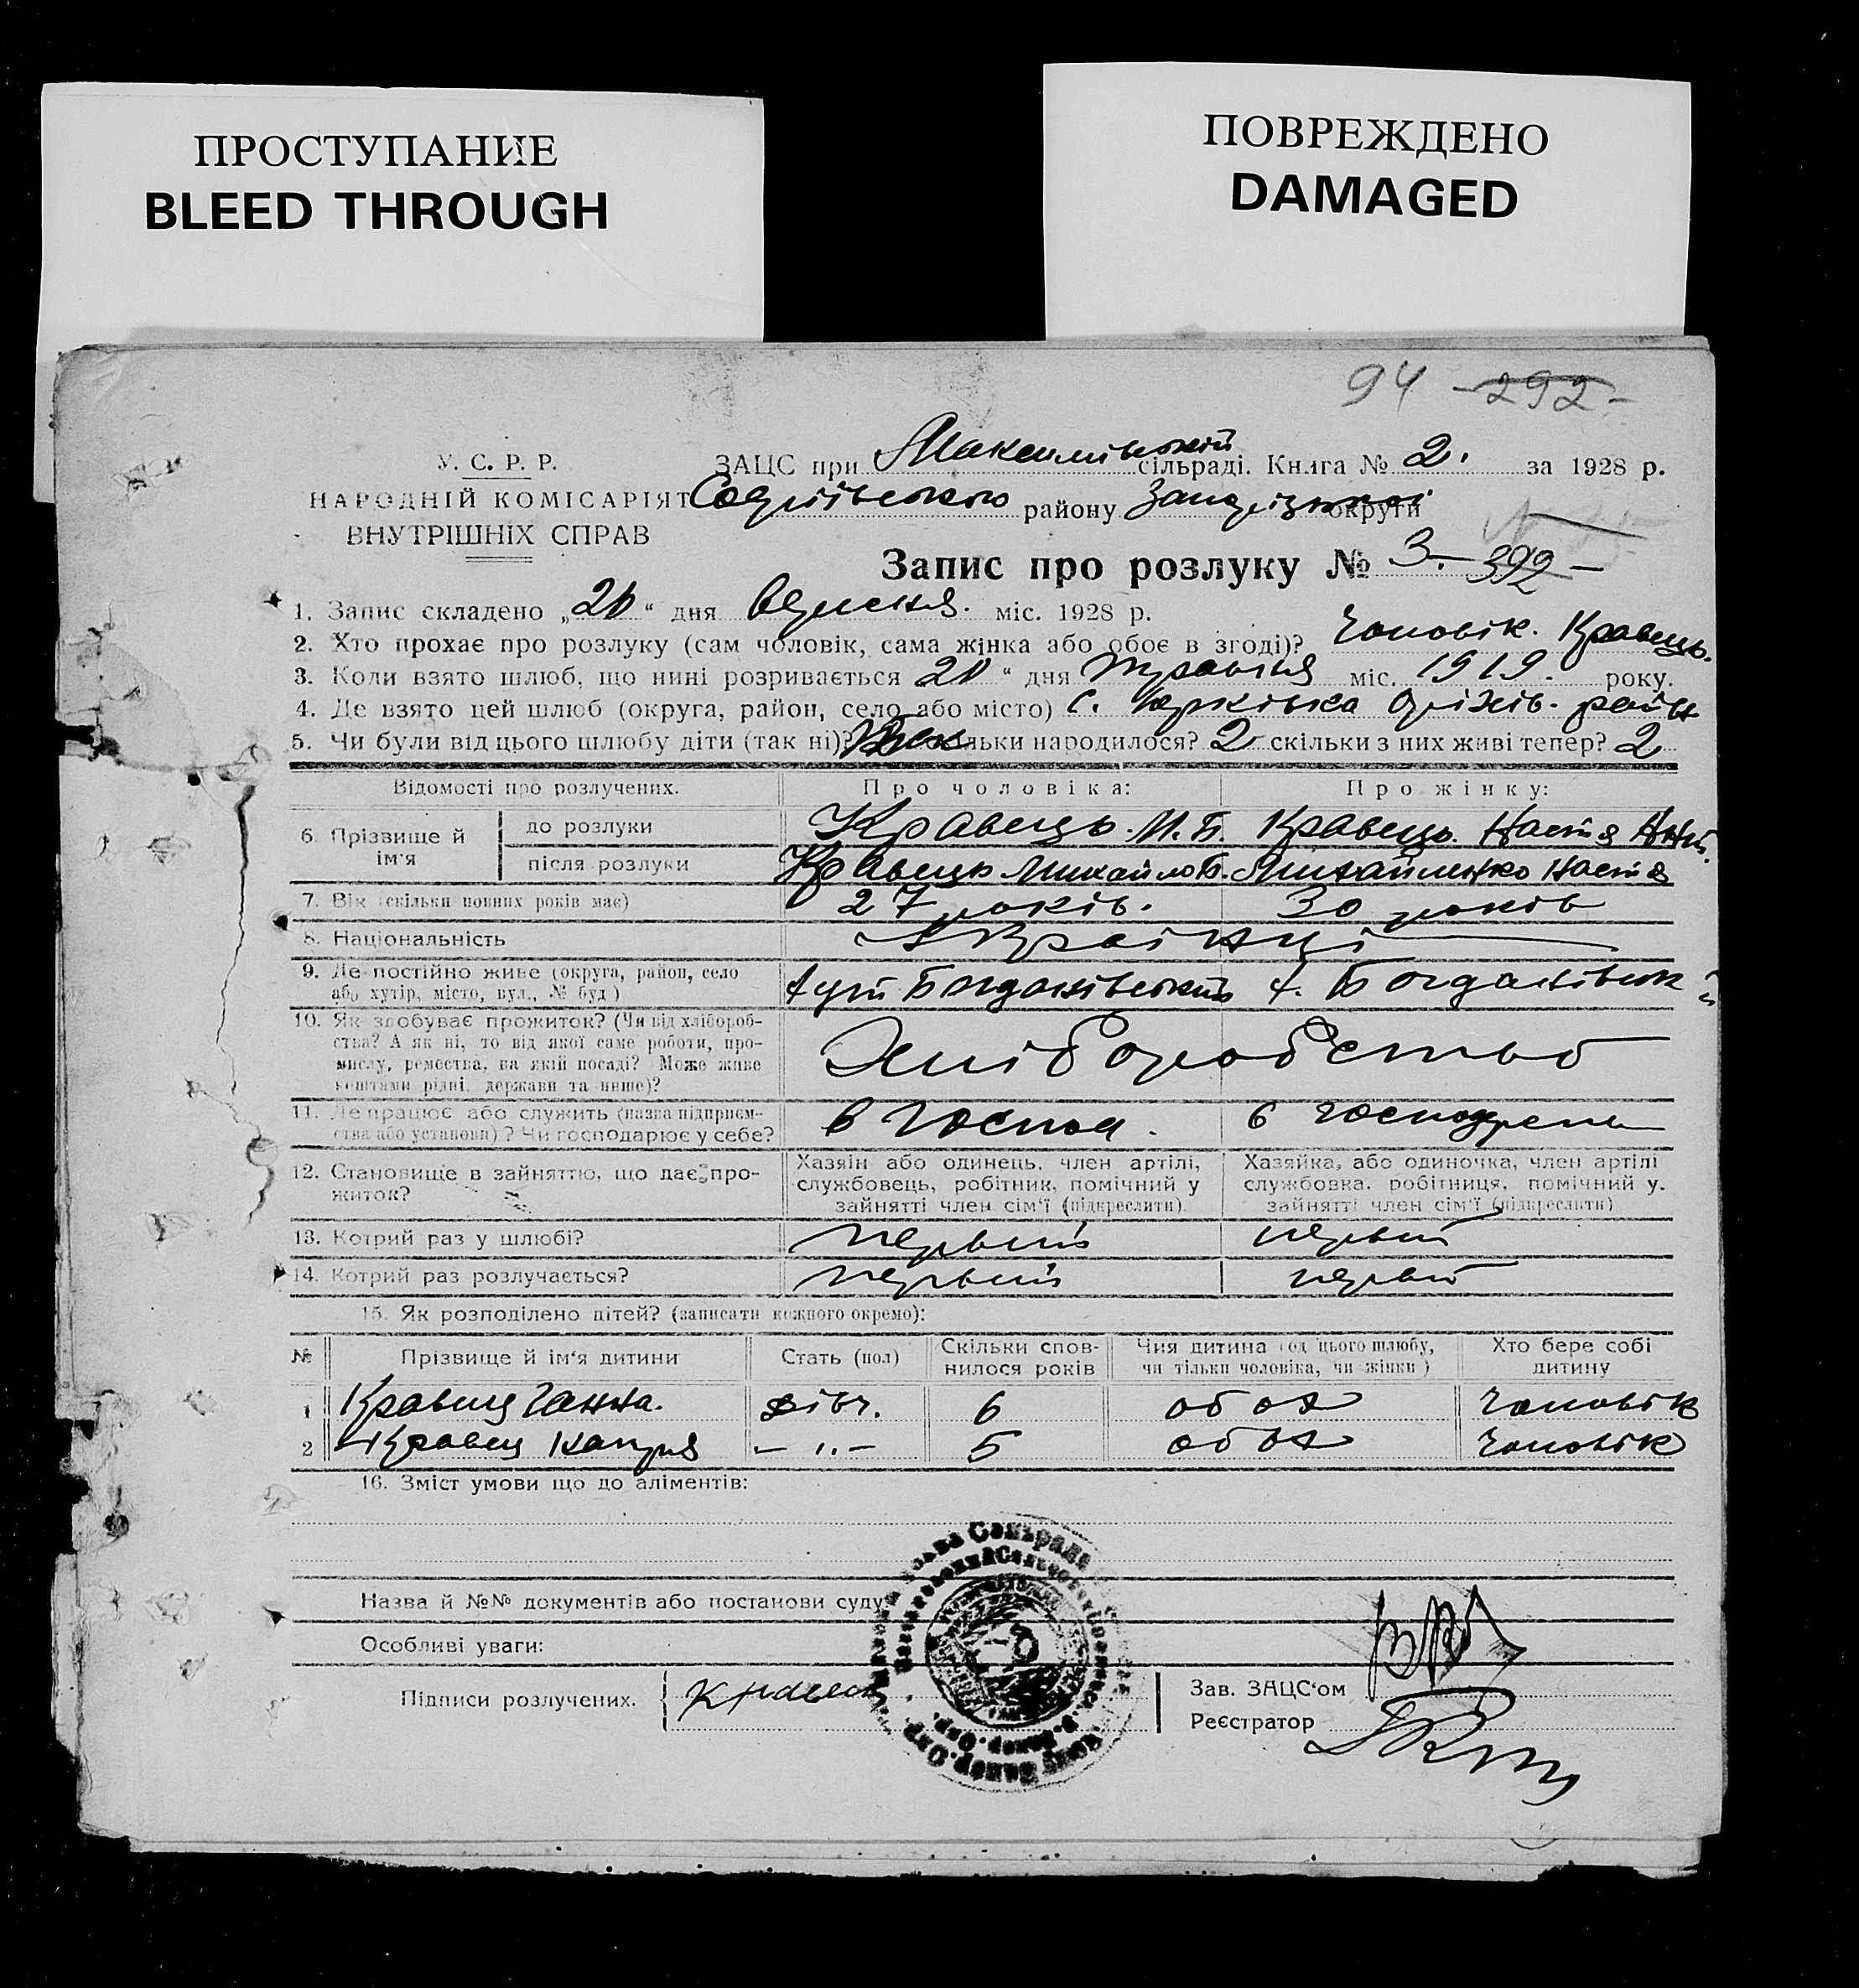 ПРОСТУПАНИЕ
BLEED THROUGH
ПОВРЕЖДЕНО
DAMAGED
94 -292-
У. С. Р. Р.
НАРОДНІЙ КОМІСАРІЯТ
ВНУТРІШНІХ СПРАВ
ЗАЦС при сільраді. Книга № 2. за 1928 р.
Софіївського району Запорізької округи
Запис про розлуку № 3. - 392 -
1. Запис складено „20“ дня вересня. міс. 1928 р.
2. Хто прохає про розлуку (сам чоловік, сама жінка або обоє в згоді)? Чоловік. Кравець.
3. Коли взято шлюб, що нині розривається 20 “ дня травня міс. 1919. року.
4. Де взято цей шлюб (округа, район, село або місто) С. Оріхів. район
5. Чи були від цього шлюбу діти (так ні)? Так скільки народилося? 2 скільки з них живі тепер? 2
Відомості про розлучених. Про чоловіка: Про жінку:
6. Прізвище й ім'я до розлуки Кравець. М. Б. Кравець. Настя
після розлуки Кравець Михайло Б. Михайленко Настя
7. Вік (скільки повних років має) 27 років. 30 років
8. Національність Українці
9. Де постійно живе (округа, район, село або хутір, місто, вул., № буд) хут Богданівський х. Богданівський
10. Як здобуває прожиток? (Чи від хлібороб-
ства? А як ні, то від якої саме роботи, про-
мислу, ремества, на якій посаді? Може живе
коштами рідні, держави та инше)? Хліборобство
11. Де працює або служить (назва підприєм-
ства або установи)? Чи господарює у себе? в господ. в
12. Становище в зайняттю, що дає про-
житок?
Хазяін або одинець, член артілі,
службовець, робітник, помічний у
зайнятті член сім'ї (підкреслити).
Хазяйка, або одиночка, член артілі
службовка, робітниця, помічний у.
зайнятті член сім'ї (підкреслити)
13. Котрий раз у шлюбі? первий первий
14. Котрий раз розлучається? первий первий
15. Як розподілено дітей? (записати кожного окремо):
№ Прізвище й ім'я дитини Стать (пол) Скільки спов-
нилося років Чия дитина (од цього шлюбу,
чи тільки чоловіка, чи жінки) Хто бере собі
дитину
1 Кравец Ганна. дівч. 6 обох Чоловік
2 Кравец - „ - 5 обох Чоловік
16. Зміст умови що до аліментів:
Назва й №№ документів або постанови суду
Особливі уваги:
Підписи розлучених. Кравець
Зав. ЗАЦС'ом
Реєстратор